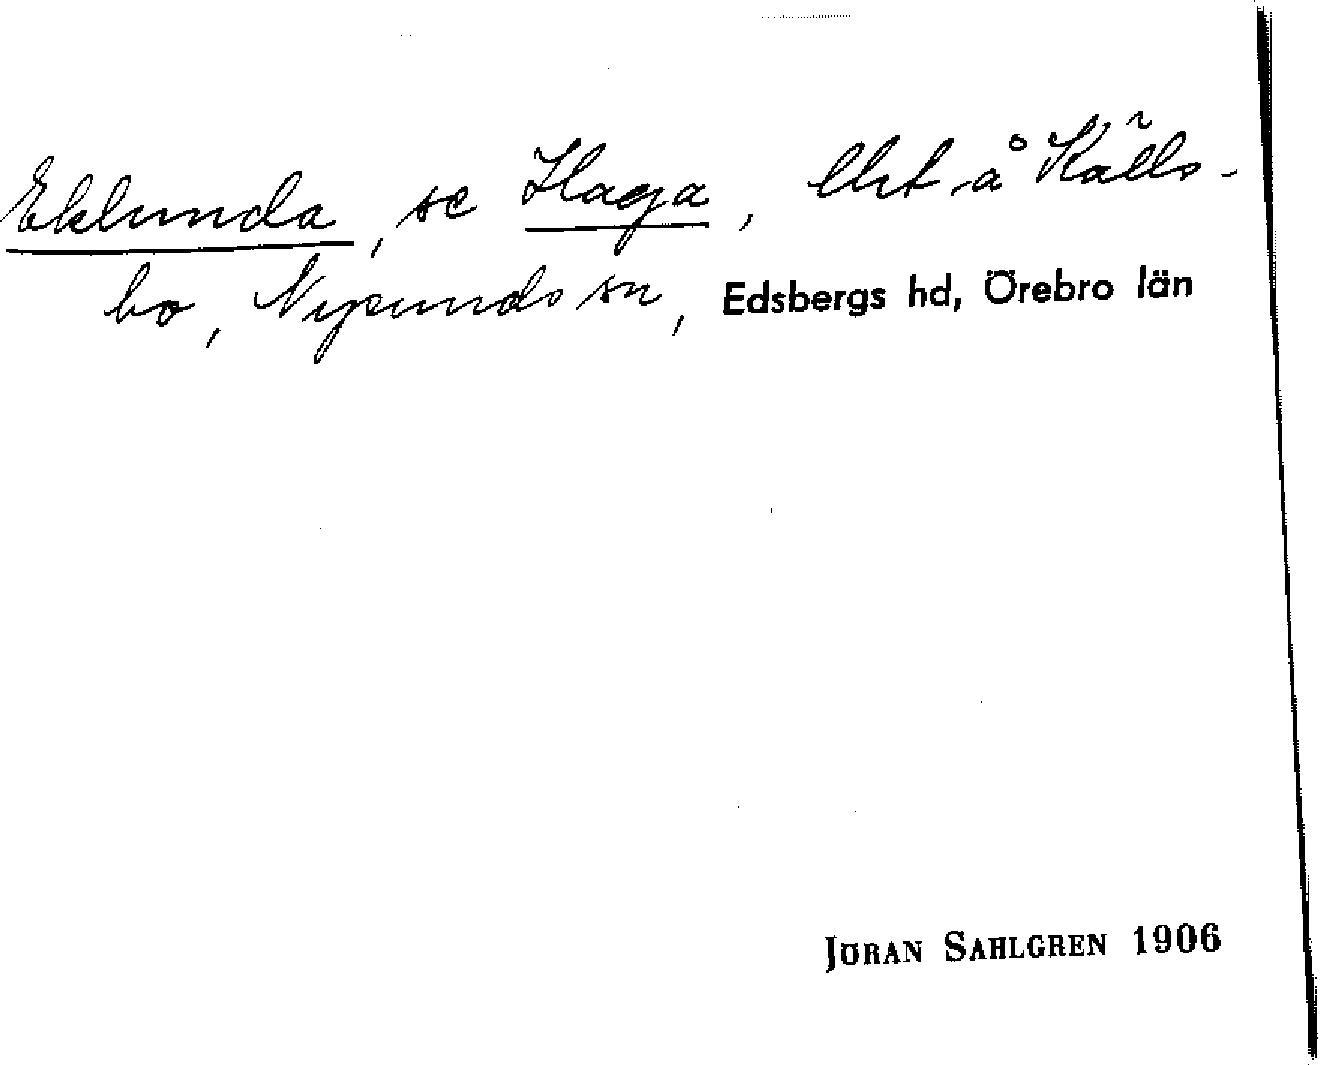 Eklunda, se Haga, lht å Källs-
bo, Nysunds sn, Edsbergs hd, Örebro län
JÖRAN SAHLGREN 1906